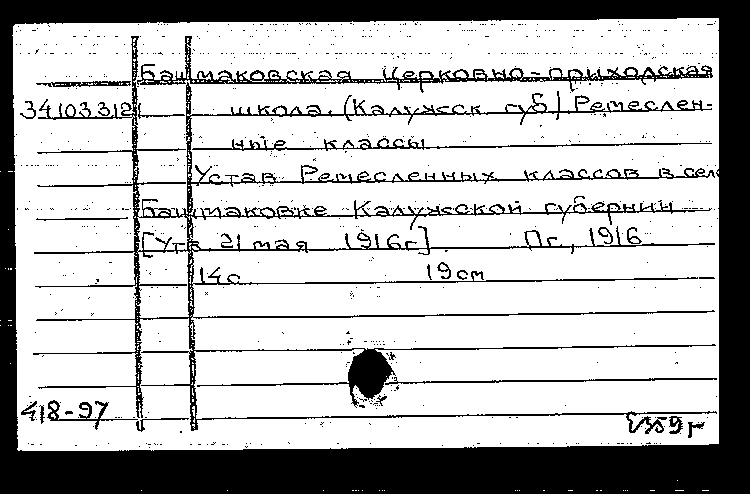 Башмаковская церковно-приходская
34/103312 школа. (Калужск губ) Ремеслен-
ные классы
Устав Ремесленных классов в селе
Башмаковке Калужской губернии
[Утв. 21 мая 1916г] Пг., 1916
14с 19см
418-97